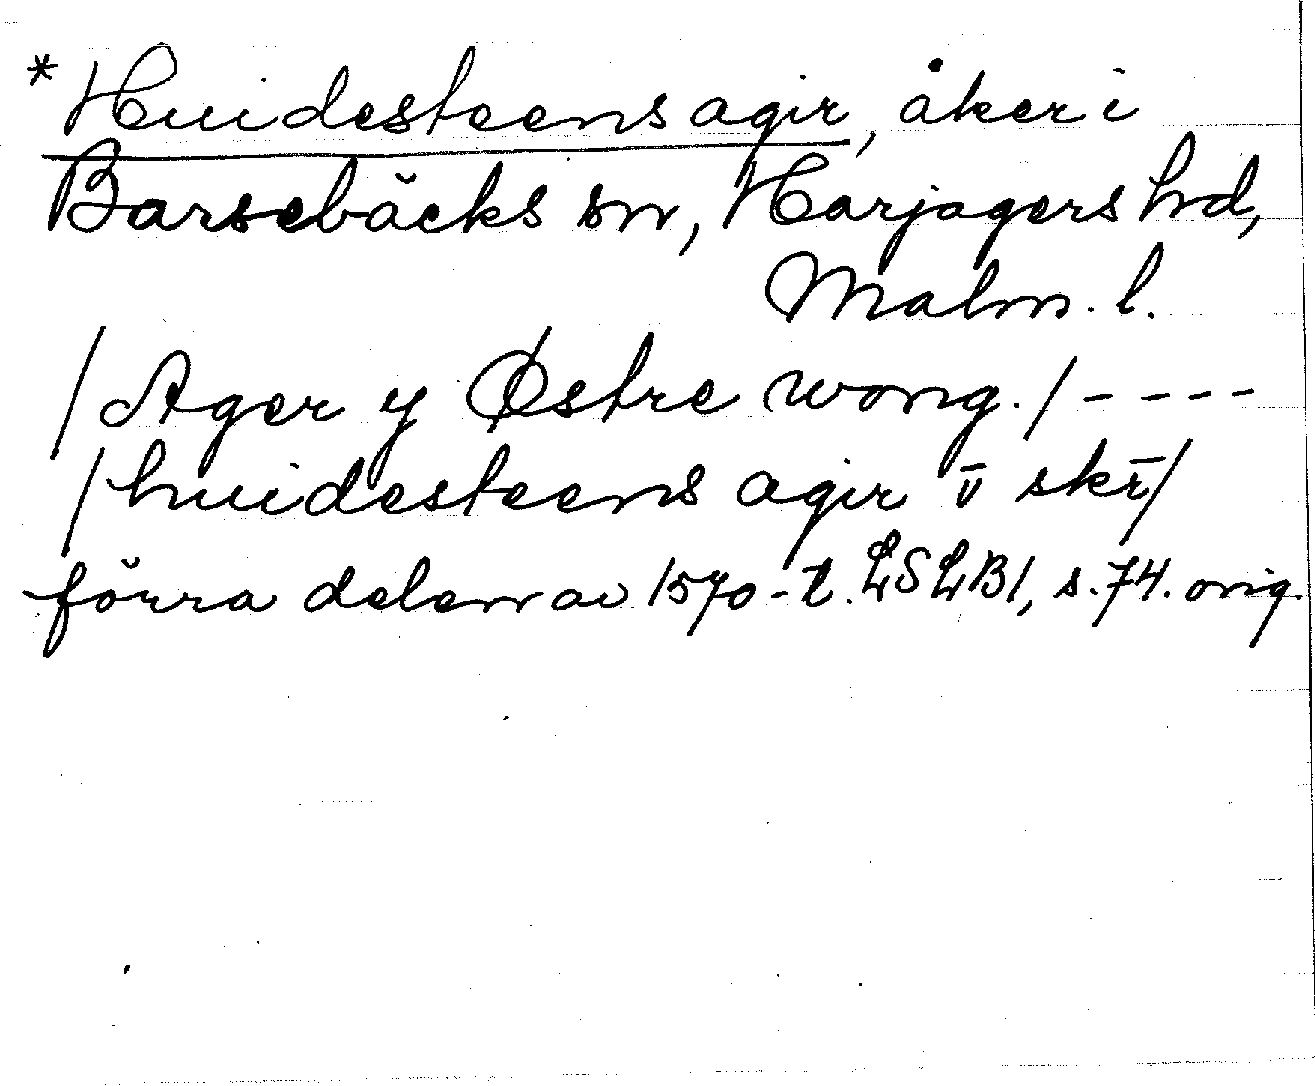 *Huidesteens agir, åker i
Barsebäcks sn, Harjagers hd,
Malm. l.
/Ager y Østre wong./----
/huidesteens agir v̄ skr̄/
förra delen av 1570-t. LSLB1, s.74. orig.